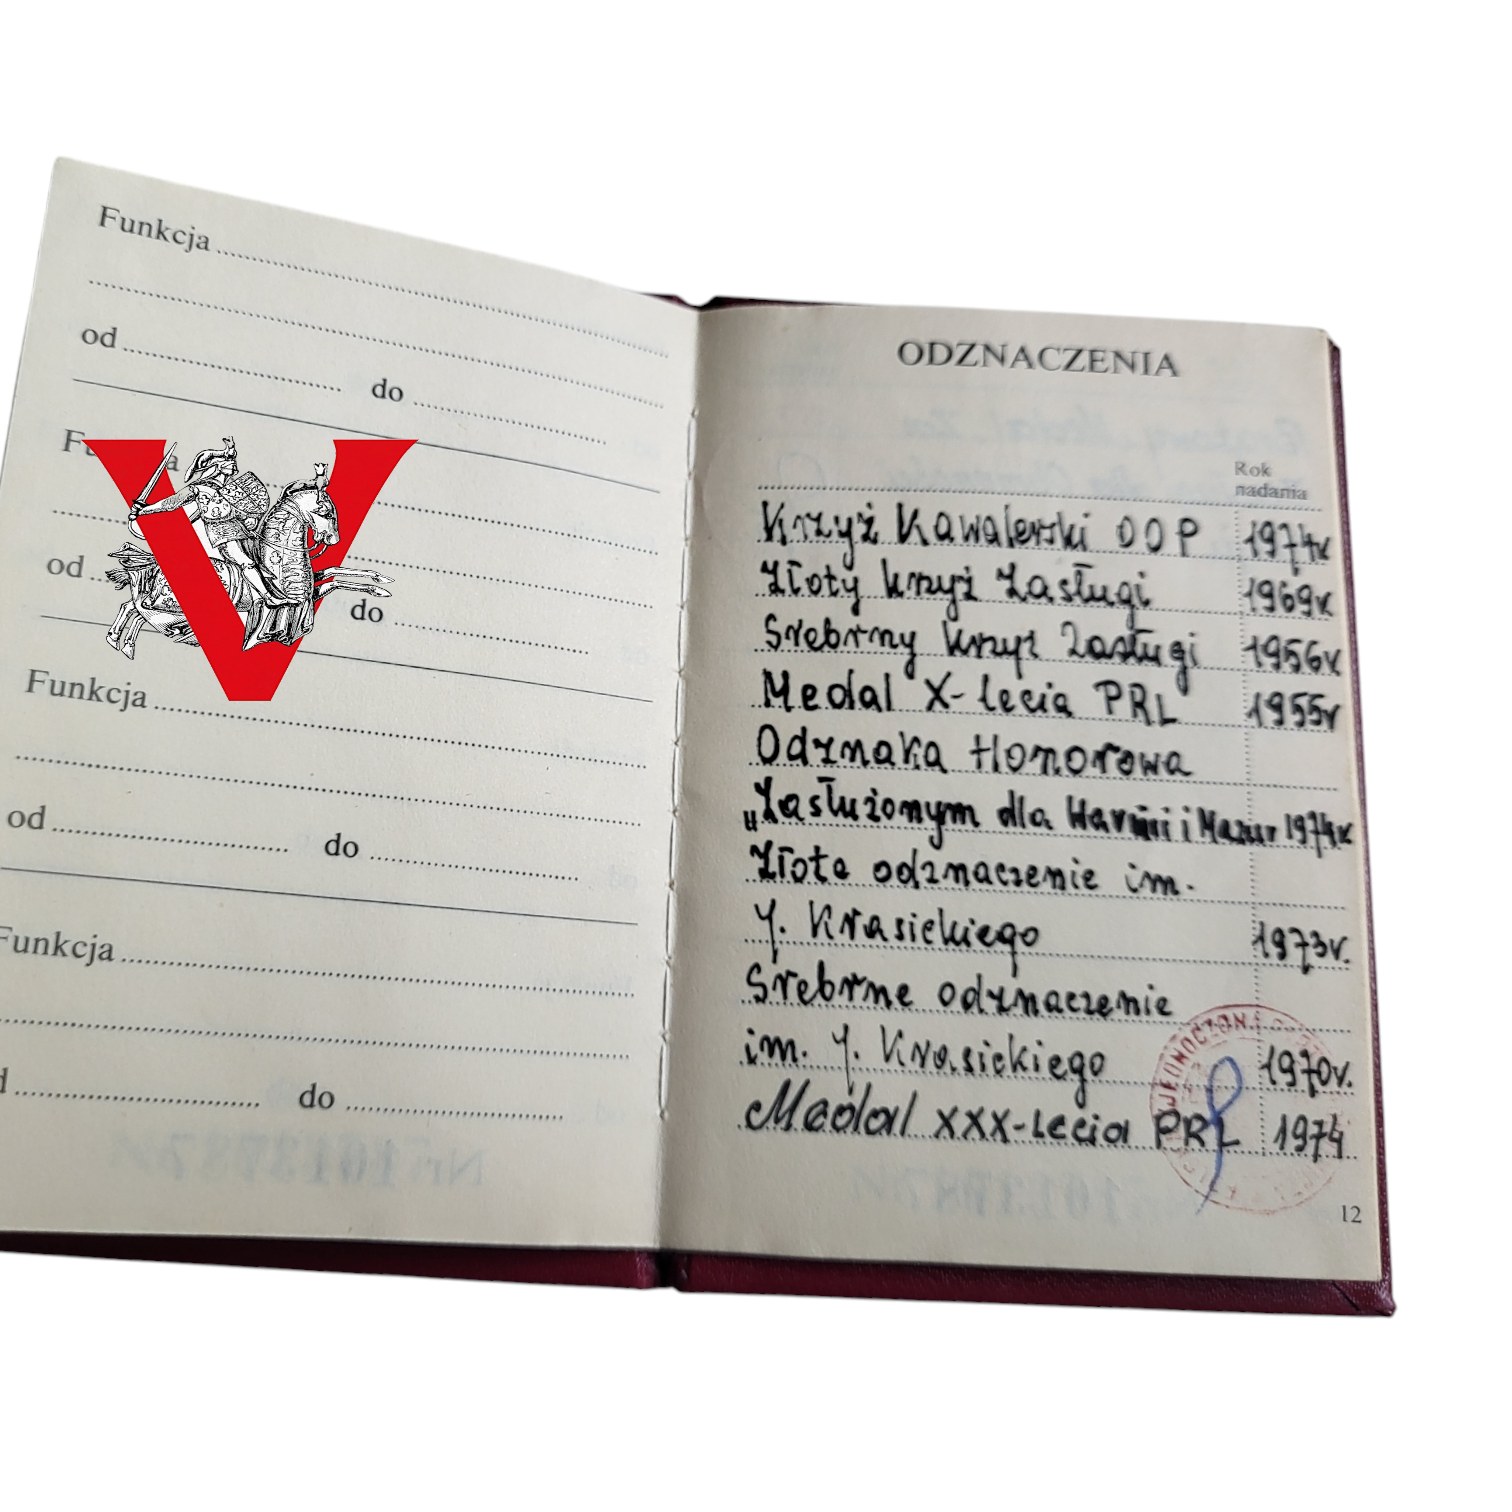 Funkcja
od do
F a
od do
Funkcja
od do
Funkcja
do
V
ODZNACZENIA
Rok
nadania
Krzyż Kawalerski OOP 1974r
Złoty krzyż Zasługi 1969r
Srebrny krzyż Zasługi 1956r
Medal X-lecia PRL 1955r
Odznaka Honorowa
„Zasłużonym dla Warmii i Mazur 1974r
Złote odznaczenie im.
J. Krasickiego 1973r.
Srebrne odznaczenie
im. J. Krasickiego 1970r.
Medal XXX-lecia PRL 1974
12